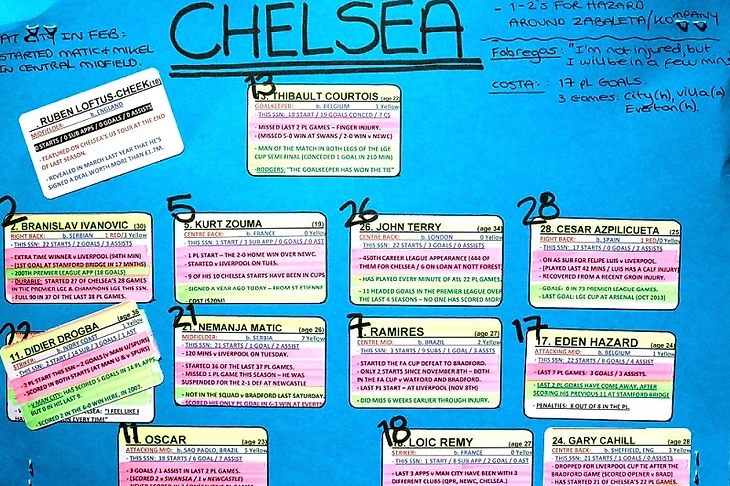 CHELSEA
AT CITY IN FEB:
STARTED MATIC + MIKEL
IN CENTRAL MIDFIELD.
- 1-2's FOR HAZARD
AROUND ZABALETA/KOMPANY
Fabregas: "I'm not injured, but
I will be in a few mins
COSTA: 17 PL GOALS.
3 Games: City(h), Villa(a)
Everton(h).
RUBEN LOFTUS-CHEEK (18)
MIDFIELDER: b. ENGLAND
0 STARTS / 0 SUB APPS / 0 GOALS / 0 ASSISTS
- FEATURED ON CHELSEA'S US TOUR AT THE END
OF LAST SEASON.
- REVEALED IN MARCH LAST YEAR THAT HE'S
SIGNED A DEAL WORTH MORE THAN £1.7M.
13
13. THIBAULT COURTOIS (age 22)
GOALKEEPER: b. BELGIUM 1 Yellow
- THIS SSN: 19 START / 19 GOALS CONCED / 7 CS
- MISSED LAST 2 PL GAMES – FINGER INJURY.
- (MISSED 5-0 WIN AT SWANS / 2-0 WIN v NEWC)
- MAN OF THE MATCH IN BOTH LEGS OF THE LGE
CUP SEMI-FINAL (CONCEDED 1 GOAL IN 210 MIN)
- RODGERS: "THE GOALKEEPER HAS WON THE TIE"
2
2. BRANISLAV IVANOVIC (30)
RIGHT BACK: b. SERBIAN 1 RED/3 Yellow
- THIS SSN: 22 STARTS / 2 GOALS / 3 ASSISTS
- EXTRA TIME WINNER v LIVERPOOL (94TH MIN)
- (1ST GOAL AT STAMFORD BRIDGE IN 17 MNTHS)
- 200TH PREMIER LEAGUE APP (18 GOALS)
- DURABLE: STARTED 27 OF CHELSEA'S 28 GAMES
IN THE PREMIER LGE & CHAMPIONS LGE THIS SSN.
- FULL 90 IN 37 OF THE LAST 38 PL GAMES.
5
5. KURT ZOUMA (19)
CENTRE BACK: b. FRANCE 0 Yellow
- THIS SSN: 1 START / 3 SUB APP / 0 GOALS / 0 AST
- 1 PL START – THE 2-0 HOME WIN OVER NEWC.
- STARTED v LIVERPOOL ON TUES.
- 9 OF HIS 10 CHELSEA STARTS HAVE BEEN IN CUPS
- SIGNED A YEAR AGO TODAY – FROM ST ETIENNE
- COST £20M)
26
26. JOHN TERRY (age 34)
CENTRE BACK: b. LONDON 0 Yellow
- THIS SSN: 22 STARTS / 3 GOALS / 0 ASSISTS
- 450TH CAREER LEAGUE APPEARANCE (444 OF
THEM FOR CHELSEA / 6 ON LOAN AT NOTT FOREST
- HAS PLAYED EVERY MINUTE OF ALL 22 PL GAMES.
- 11 HEADED GOALS IN THE PREMIER LEAGUE OVER
THE LAST 4 SEASONS – NO ONE HAS SCORED MORE
28
28. CESAR AZPILICUETA (25
RIGHT BACK: b. SPAIN 1 RED/0 Yellow
- THIS SSN: 17 STARTS / 0 GOALS / 2 ASSISTS
- ON AS SUB FOR FELIPE LUIS v LIVERPOOL.
- (PLAYED LAST 42 MINS / LUIS HAS A CALF INJURY)
- RECOVERED FROM A RECENT GROIN INJURY.
- GOALS: 0 IN 73 PREMIER LEAGUE GAMES.
- LAST GOAL: LGE CUP AT ARSENAL (OCT 2013)
11. DIDIER DROGBA (age 36
STRIKER: IVORY COAST 1 Yellow
- 2 PL START THIS SSN – 2 GOALS (v MAN U/SPURS)
- SCORED IN BOTH STARTS (AT MAN U & v SPURS)
- v MAN CITY: HAS SCORED 6 GOALS IN 14 PL APPS
BUT 0 IN HIS LAST
- SCORED 2 IN THE 6-0 WIN HERE, IN 2007.
"I FEEL LIKE I
EVERY TIME"
21
21. NEMANJA MATIC (age 26)
MIDFIELDER: b. SERBIA 7 Yellow
- THIS SSN: 21 STARTS / 1 GOAL / 0 ASSISTS
- 120 MINS v LIVERPOOL ON TUESDAY.
- STARTED 36 OF THE LAST 37 PL GAMES.
- MISSED 1 PL GAME THIS SEASON – HE WAS
SUSPENDED FOR THE 2-1 DEF AT NEWCASTLE
- NOT IN THE SQUAD v BRADFORD LAST SATURDAY
- SCORED HIS ONLY PL GOAL IN 6-3 WIN AT EVERTON
7
7. RAMIRES (age 27)
CENTRE MID: b. BRAZIL 2 Yellow
- THIS SSN: 3 STARTS / 9 SUBS / 1 GOAL / 0 ASSIST
- STARTED THE FA CUP DEFEAT TO BRADFORD.
- ONLY 2 STARTS SINCE NOVEMBER 8TH – BOTH
IN THE FA CUP v WATFORD AND BRADFORD.
- LAST PL START – AT LIVERPOOL (NOV 8TH)
- DID MISS 6 WEEKS EARLIER THROUGH INJURY.
17
17. EDEN HAZARD (age 24)
ATTACKING MID: b. BELGIUM 1 Yellow
- THIS SSN: 22 STARTS / 8 GOALS / 4 ASSISTS
- LAST 7 PL GAMES: 3 GOALS / 3 ASSISTS.
- LAST 2 PL GOALS HAVE COME AWAY, AFTER
SCORING HIS PREVIOUS 11 AT STAMFORD BRIDGE
- PENALTIES: 8 OUT OF 8 IN THE PL.
11
OSCAR (age 23)
ATTACKING MID: b. SAO PAOLO, BRAZIL 5 Yellow
- THIS SSN: 18 STARTS / 6 GOALS / 7 ASSISTS
- 3 GOALS / 1 ASSIST IN LAST 2 PL GAMES.
- (SCORED 2 v SWANSEA / 1 v NEWCASTLE)
18
18. LOIC REMY (age 27)
STRIKER: b. FRANCE 0 Yellow
- THIS SSN: 1 START / 8 SUBS / 2 GOAL / 0 ASSIST
- LAST 3 APPS v MAN CITY HAVE BEEN WITH 3
DIFFERENT CLUBS (QPR, NEWC, CHELSEA.)
24. GARY CAHILL (age 28
CENTRE BACK: b. SHEFFIELD, ENG 3 Yellow
- THIS SSN: 21 STARTS / 1 GOAL / 0 ASSISTS
- DROPPED FOR LIVERPOOL CUP TIE AFTER THE
BRADFORD GAME (SCORED OPENER v BRAD)
- HAS STARTED 21 OF CHELSEA'S 22 PL GAMES.